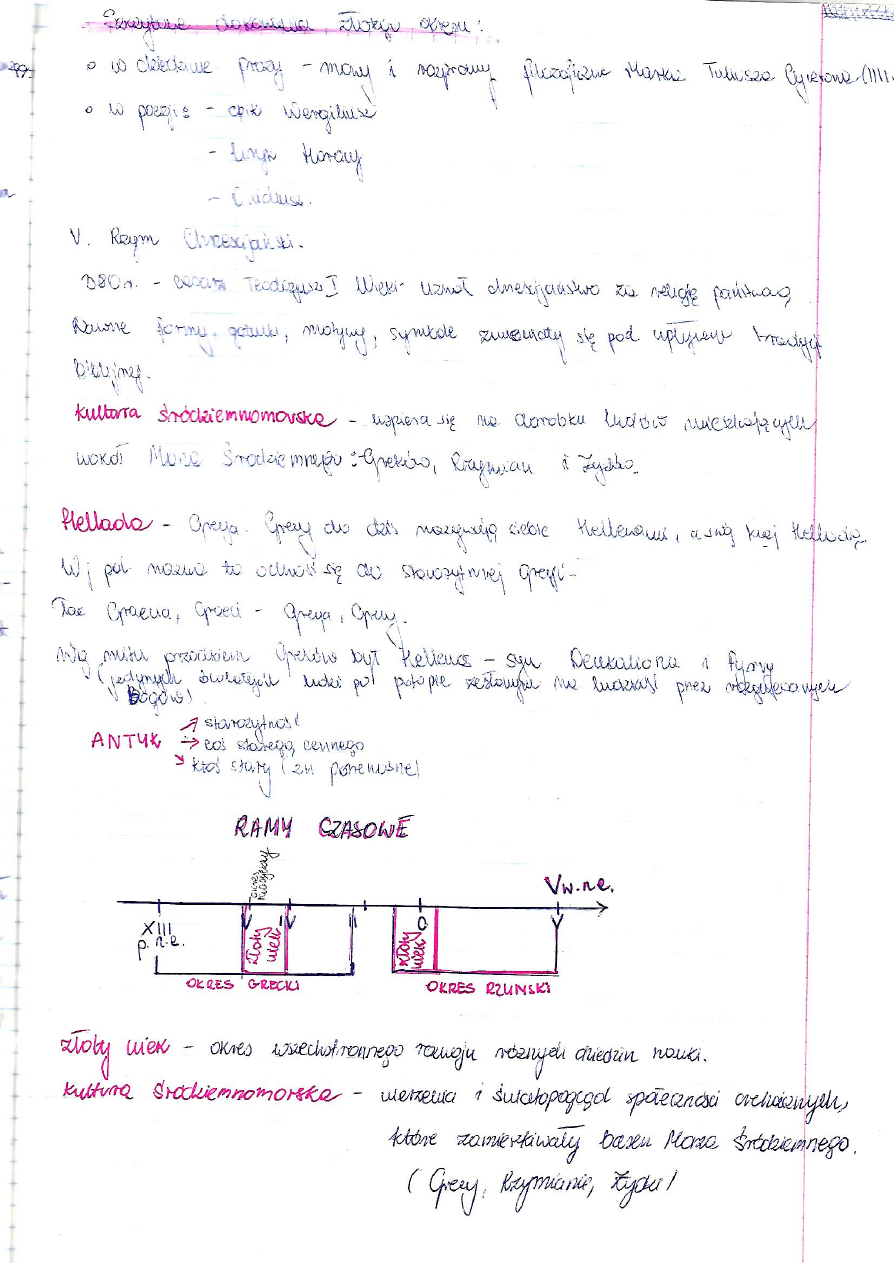 Szczytowe dokonania złotego okresu:
o w dziedzinie prozy - mowy i rozprawy filozoficzne Marka Tuliusza Cycerona (III.
o w poezji - epik Wergiliusz
- liryk Horacy
- Owidiusz.
V. Rzym Chrześcijański.
380 r. - cesarz Teodozjusz I Wielki uznał chrześcijaństwo za religię państwową.
Dawne formy, gatunki, motywy, symbole zmieniały się pod wpływem tradycji
biblijnej.
Kultura śródziemnomorska - wspiera się na dorobku ludów mieszkających
wokół Morza Śródziemnego: Greków, Rzymian i Żydów.
Hellada - Grecja. Grecy do dziś nazywają siebie Hellenami, a swój kraj Helladą.
W j. pol. nazwa ta odnosi się do starożytnej Grecji.
Łac Graecia, Graeci - Grecja, Grecy.
Wg mitu przodkiem Greków był Hellenos - syn Deukaliona i Pyrry
(jedynych ocalałych ludzi po potopie zesłanym na ludzkość przez rozgniewanych
Bogów)
ANTYK → starożytność
→ coś starego, cennego
→ ktoś stary (zn. przenośne)
RAMY CZASOWE
okres klasyczny
V w. n.e.
XIII
p.n.e.
V
IV
II
I
0
V
złoty wiek
złoty wiek
OKRES GRECKI
OKRES RZYMSKI
Złoty wiek - okres wszechstronnego rozwoju różnych dziedzin nauki.
Kultura śródziemnomorska - wierzenia i światopogląd społeczności archaicznych,
które zamieszkiwały basen Morza Śródziemnego.
(Grecy, Rzymianie, Żydzi)